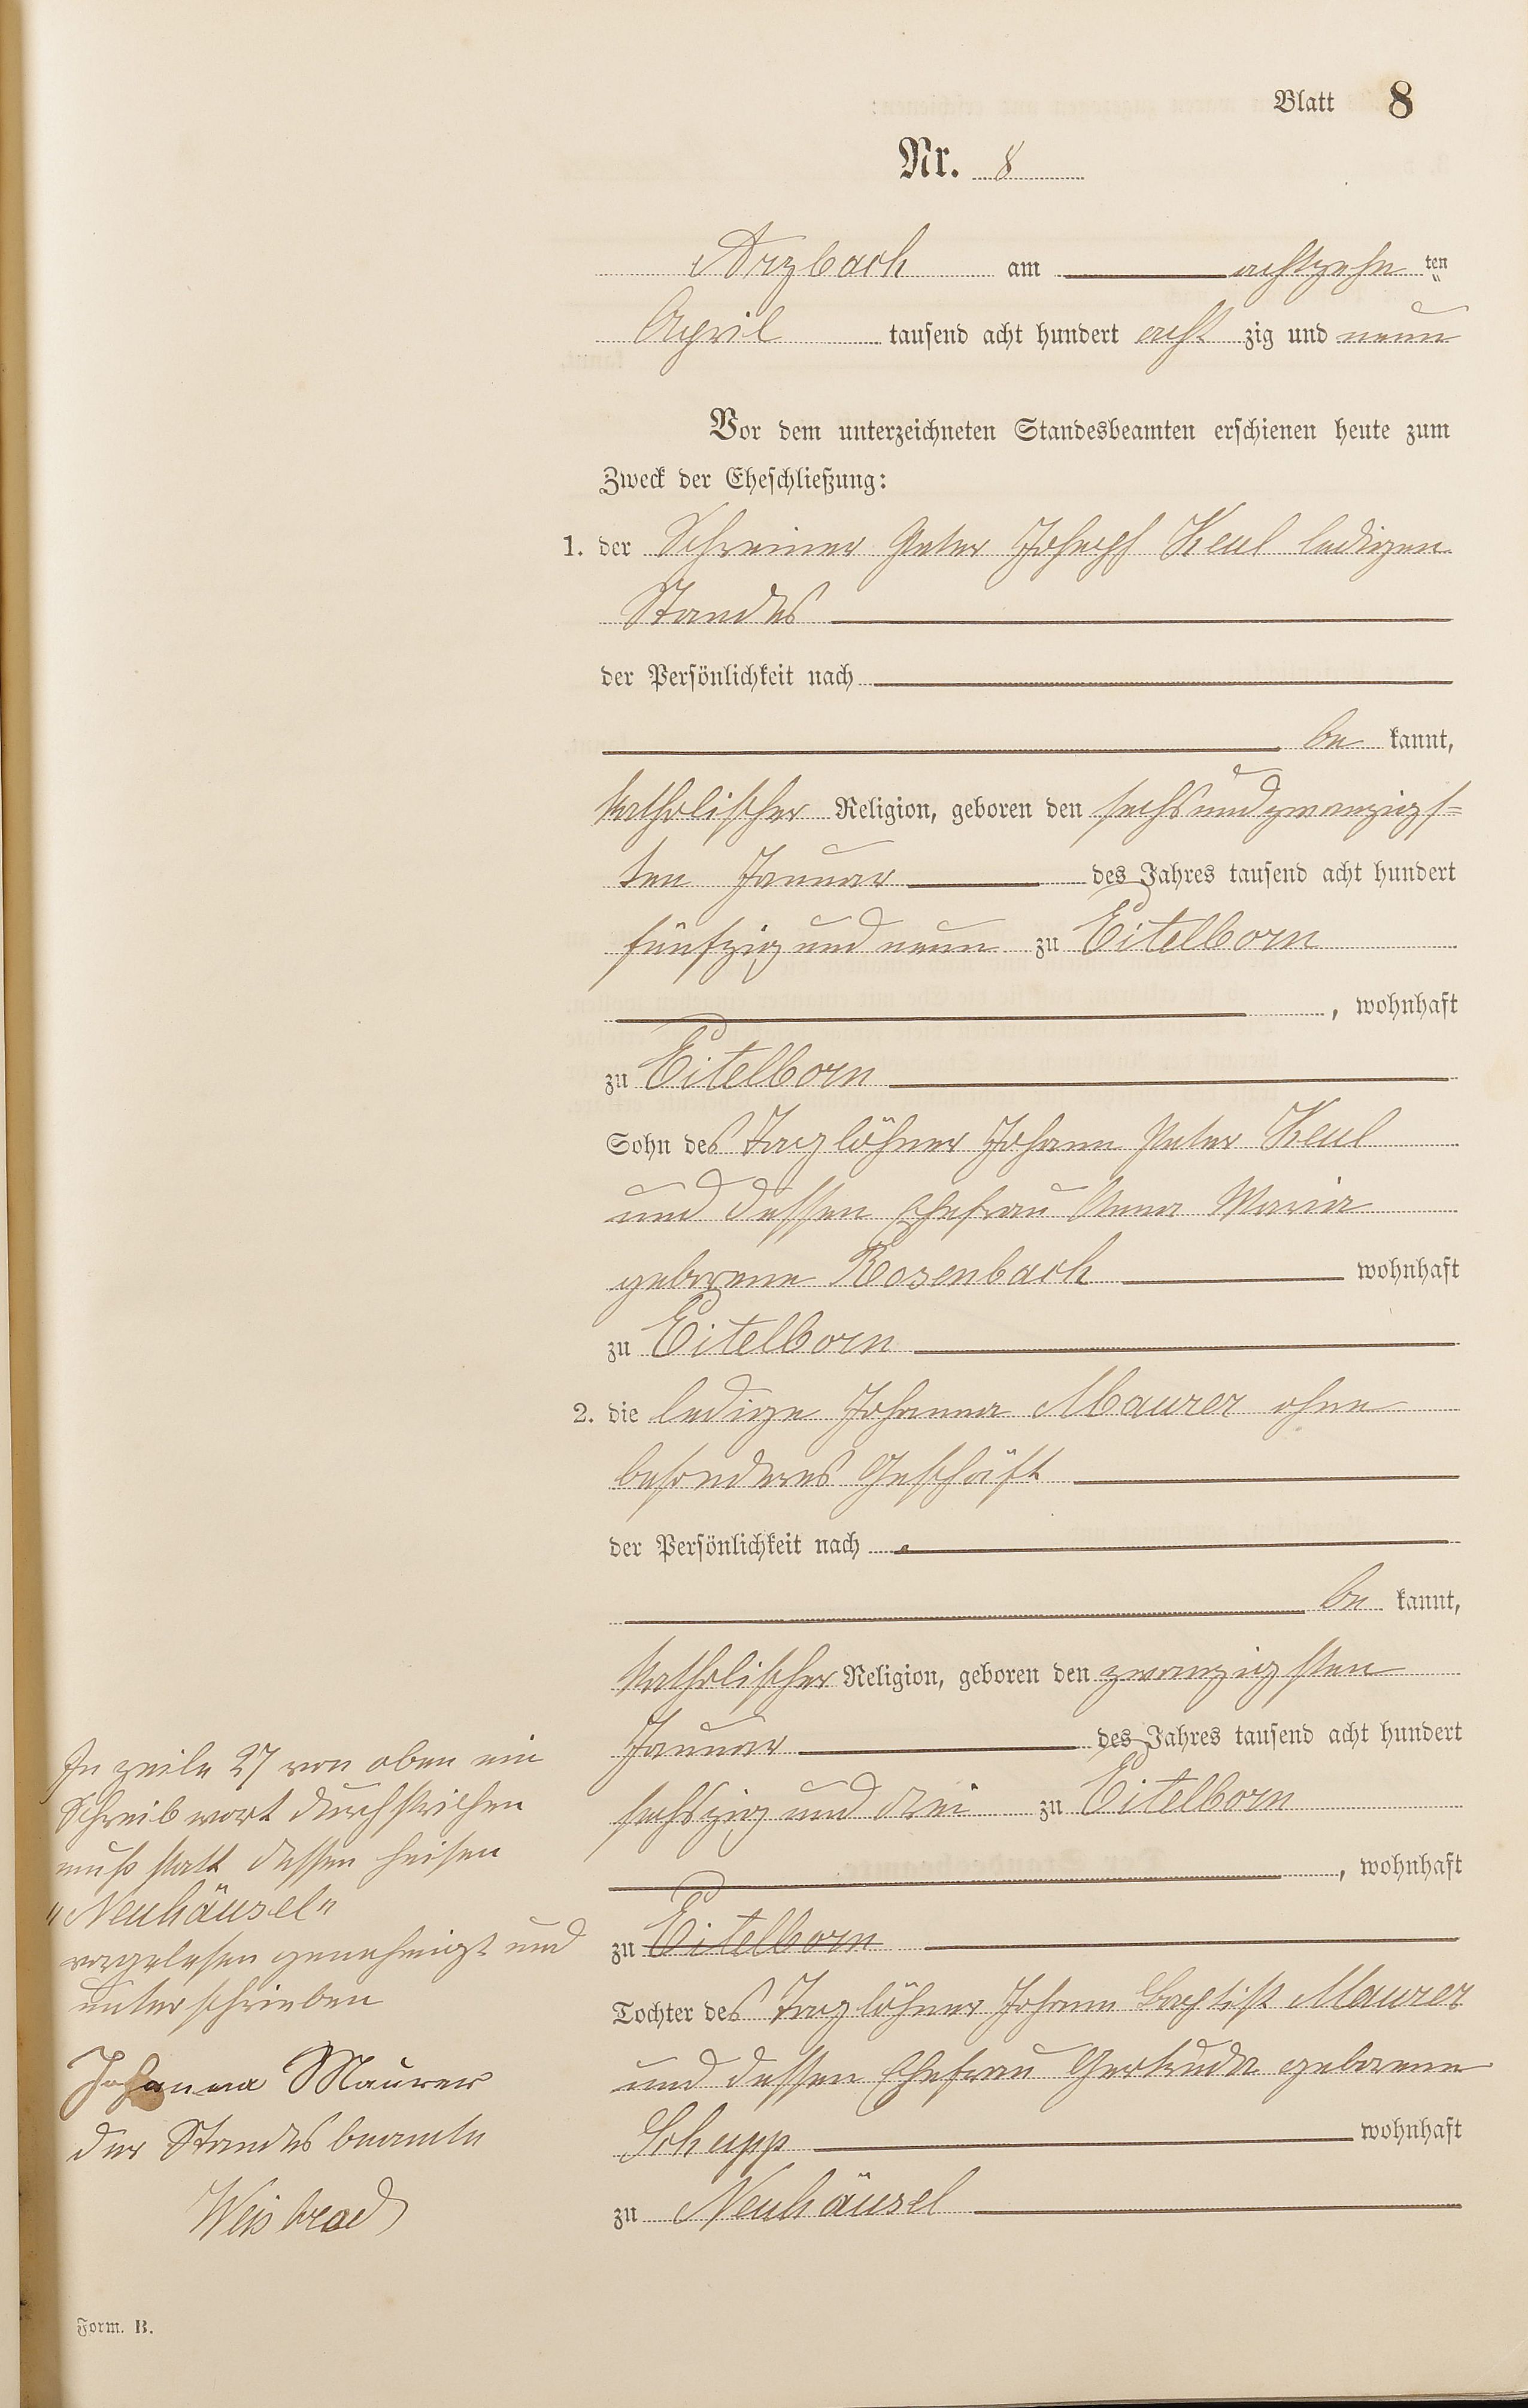 Blatt 8
Nr. 8
Arzbach am achtzehn ten
April tausend acht hundert acht zig und neun
Vor dem unterzeichneten Standesbeamten erschienen heute zum
Zweck der Eheschließung:
1. der Schreiner Peter Joseph Keul ledigen
Standes
der Persönlichkeit nach
be kannt,
katholischer Religion, geboren den sechsundzwanzigs=
ten Januar des Jahres tausend acht hundert
fünfzig und neun zu Eitelborn
, wohnhaft
zu Eitelborn
Sohn des Taglöhner Johann Peter Keul
und dessen Ehefrau Anna Maria
geborene Rosenbach wohnhaft
zu Eitelborn
2. die ledige Johanna Maurer ohne
besonderes Geschäft
der Persönlichkeit nach
be kannt,
katholischer Religion, geboren den zwanzigsten
Januar des Jahres tausend acht hundert
sechszig und drei zu Eitelborn
, wohnhaft
zu Eitelborn
Tochter des Taglöhner Johann Baptist Maurer
und dessen Ehefrau Gertruda geborene
Schupp wohnhaft
zu Neuhäusel
In zeile 27 von oben ein
Schreibwort durchstrichen
muß statt dessen heisen
"Neuhäusel"
vorgelesen genehmigt und
unterschrieben
Johanna Maurer
der Standesbeamte
Weisbrod
Form. B.